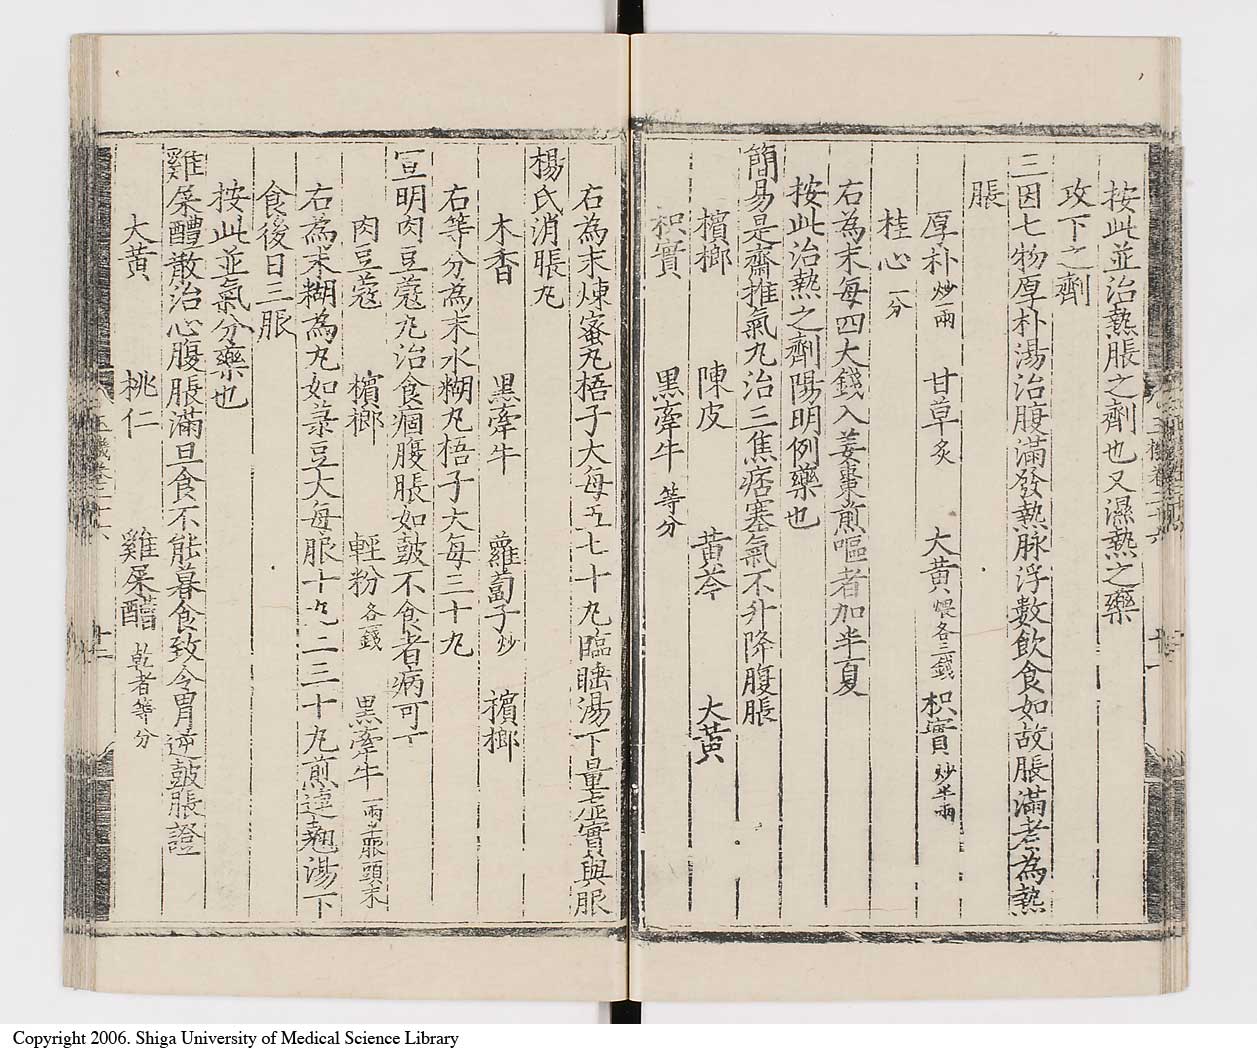 按此並治熱脹之劑也又濕熱之藥
攻下之劑
三因七物厚朴湯治腹滿發熱脉浮數飲食如故脹滿者為熱
脹
厚朴炒一兩 甘草炙 大黃煨各三錢 枳實炒半兩
桂心一分
右為末每四大錢入姜棗煎嘔者加半夏
按此治熱之劑陽明例藥也
簡易是齋推氣丸治三焦痞塞氣不升降腹脹
檳榔 陳皮 黃芩 大黃
枳實 黑牽牛等分
右為末煉蜜丸梧子大每五七十丸臨睡湯下量虛實與服
楊氏消脹丸
木香 黑牽牛 蘿蔔子炒 檳榔
右等分為末水糊丸梧子大每三十丸
宣明肉豆蔻丸治食痼腹脹如鼓不食者病可下
肉豆蔻 檳榔 輕粉各一錢 黑牽牛一兩半取頭末
右為末糊為丸如菉豆大每服十丸二三十丸煎連翹湯下
食後日三服
按此並氣分藥也
雞屎醴散治心腹脹滿旦食不能暮食致令胃逆鼓脹證
大黃 桃仁 雞屎醴乾者等分
玉機卷二十六
十二
Copyright 2006. Shiga University of Medical Science Library